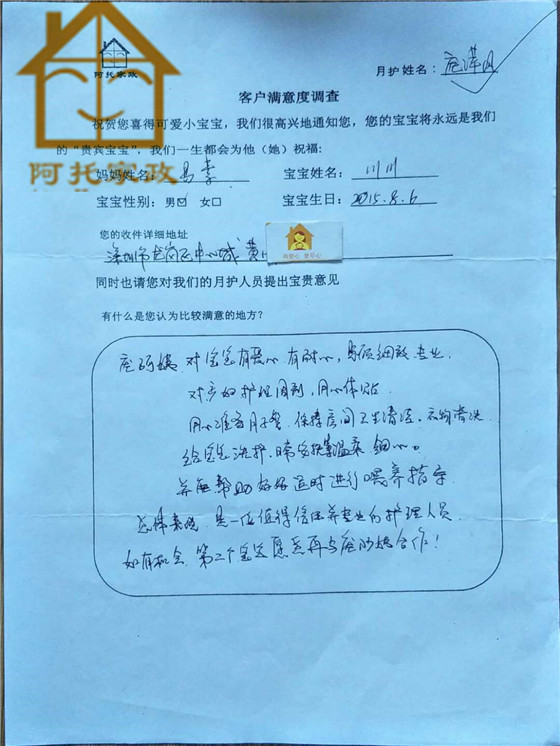 阿托家政
阿托家政
月护姓名：
客户满意度调查
祝贺您喜得可爱小宝宝，我们很高兴地通知您，您的宝宝将永远是我们
的“贵宾宝宝”，我们一生都会为他（她）祝福：
妈妈姓名： 宝宝姓名：川川
宝宝性别：男☑ 女☐ 宝宝生日：2015.8.6
您的收件详细地址
深圳市龙岗区中心城
同时也请您对我们的月护人员提出宝贵意见
有什么是您认为比较满意的地方？
阿姨 对宝宝有爱心 有耐心，细致 专业.
对产妇护理周到，用心体贴
用心准备月子餐 保持房间卫生清洁，衣物清洗
给宝宝洗护、温柔 细心。
并能帮助 适时进行喂养指导
是一位值得信任并专业的护理人员
如有机会 第二个宝宝愿意再与 阿姨合作！